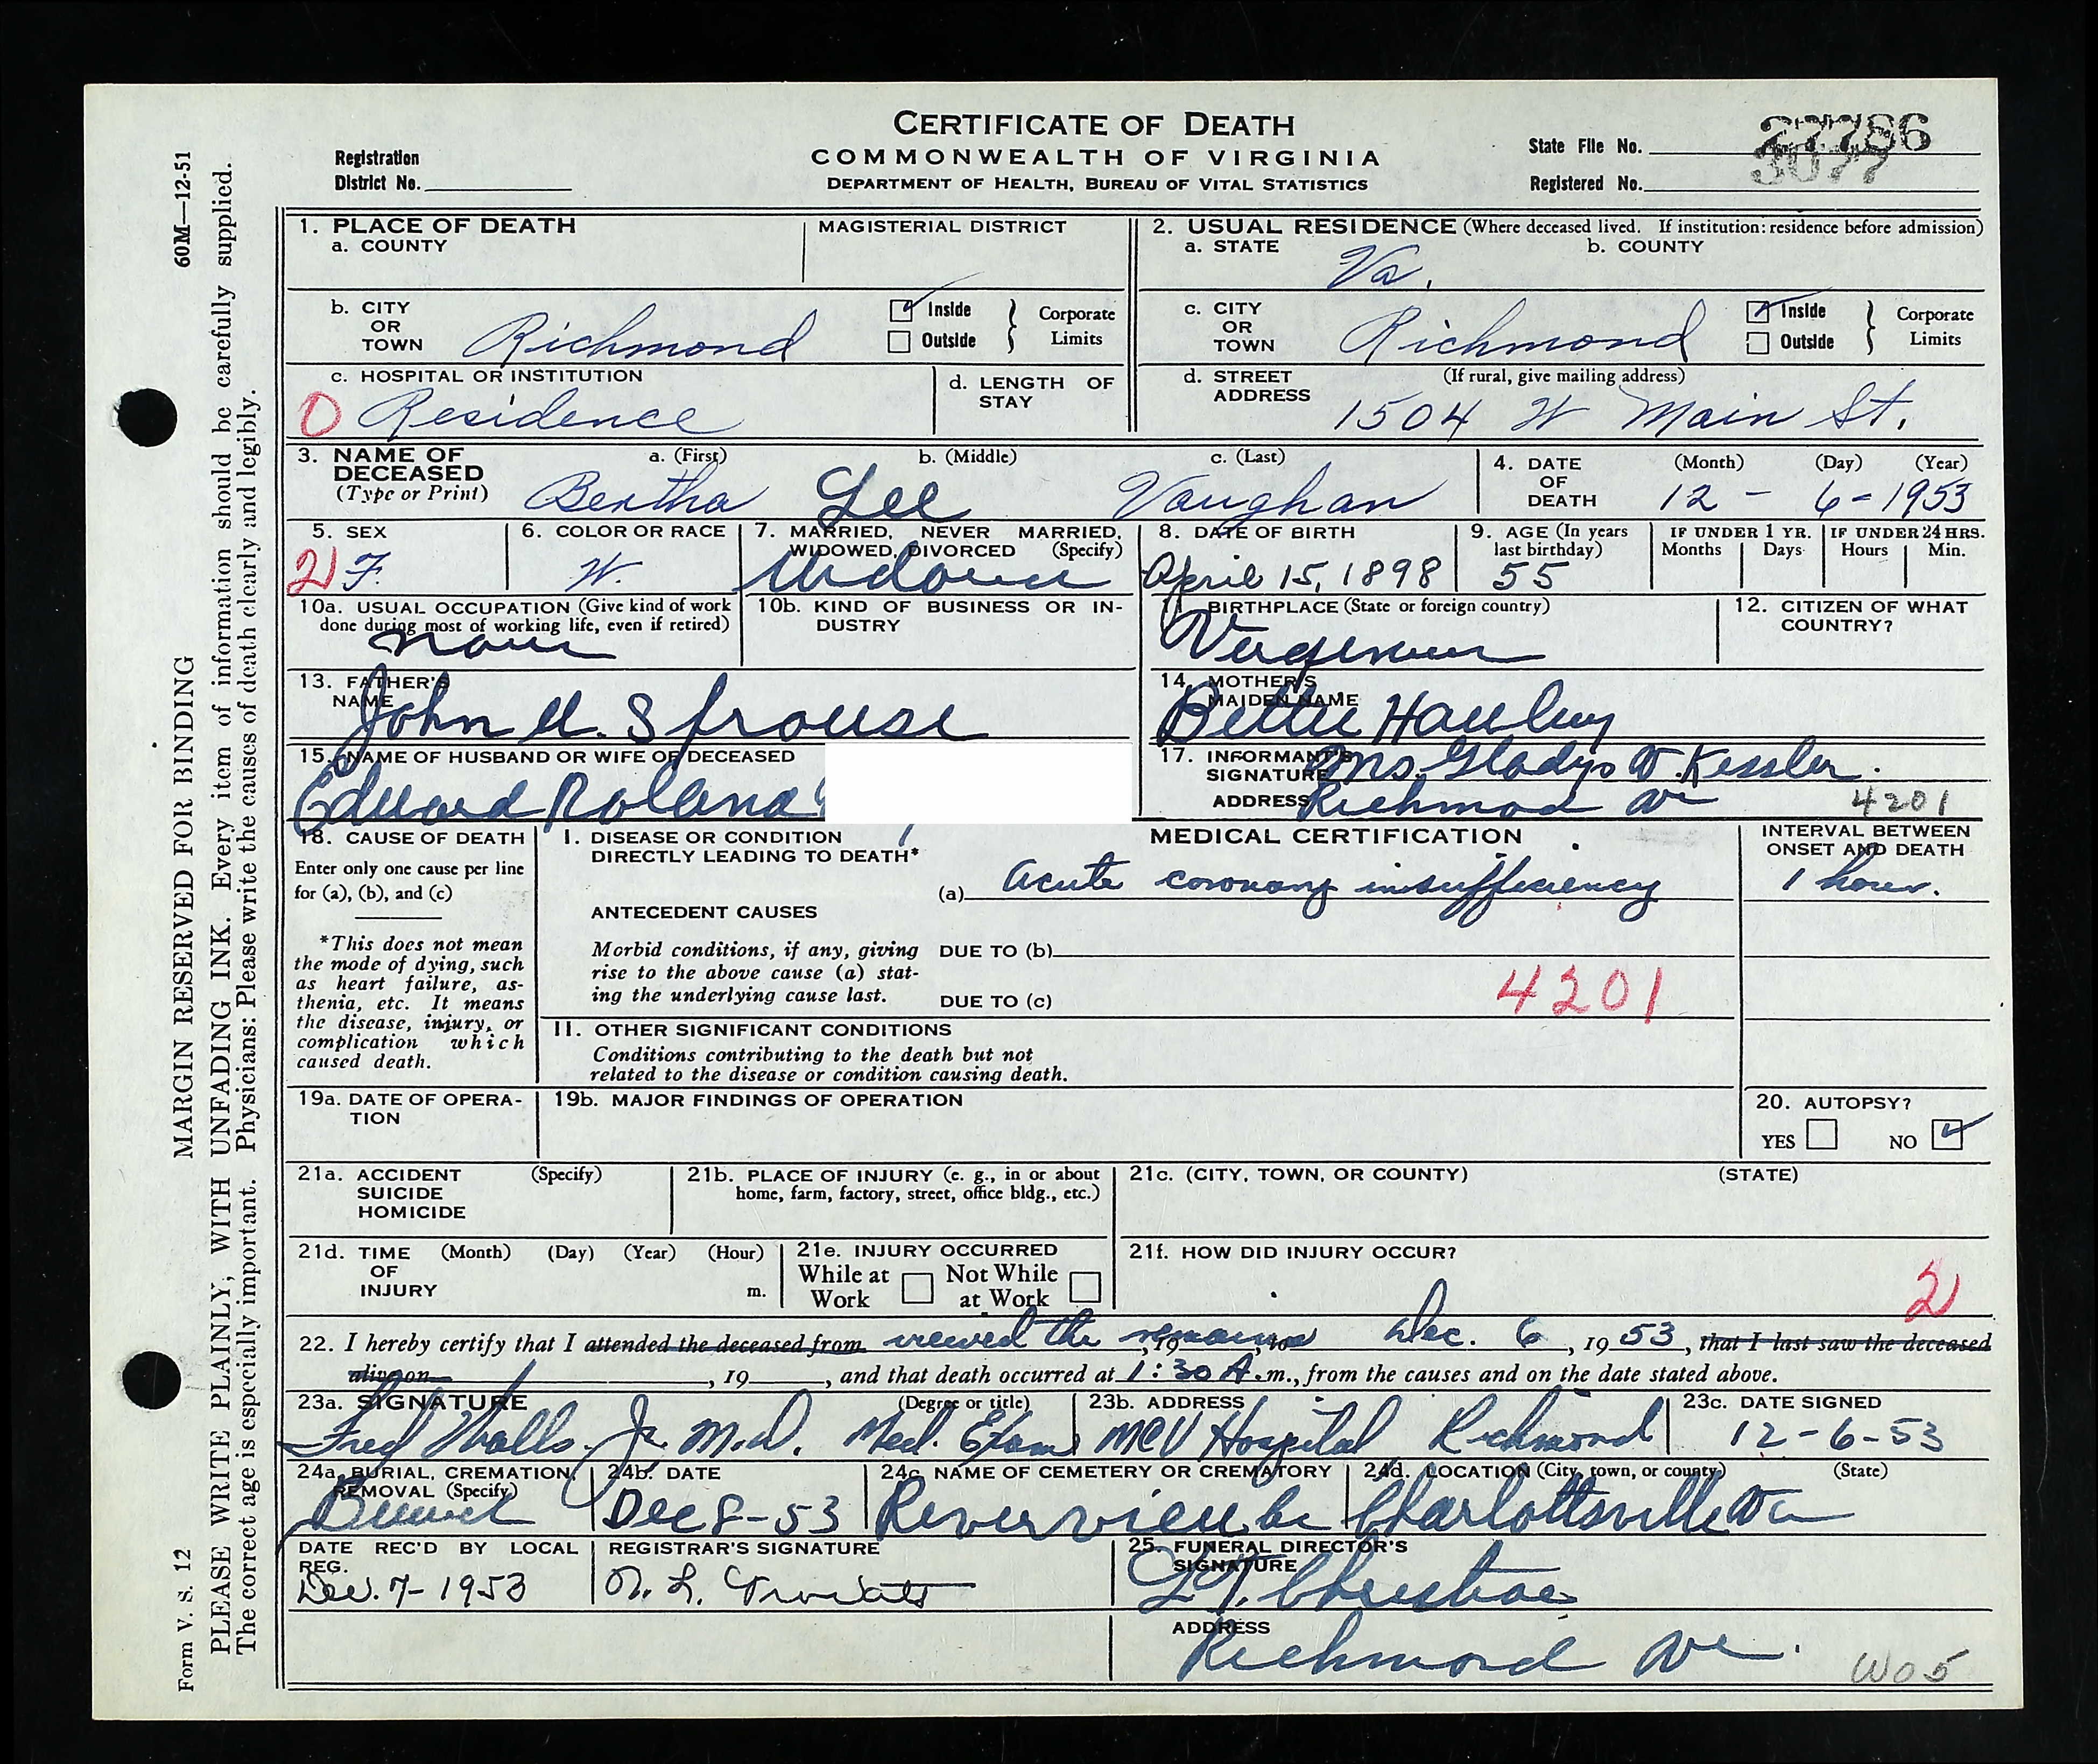 CERTIFICATE OF DEATH
COMMONWEALTH OF VIRGINIA
DEPARTMENT OF HEALTH, BUREAU OF VITAL STATISTICS
Registration
District No.
State File No. 27786
Registered No. 3077
60M—12-51
MARGIN RESERVED FOR BINDING
PLEASE WRITE PLAINLY, WITH UNFADING INK. Every item of information should be carefully supplied.
The correct age is especially important. Physicians: Please write the causes of death clearly and legibly.
Form V. S. 12
1. PLACE OF DEATH
a. COUNTY
MAGISTERIAL DISTRICT
2. USUAL RESIDENCE (Where deceased lived. If institution: residence before admission)
a. STATE Va.
b. COUNTY
b. CITY OR TOWN Richmond
Inside
Outside
Corporate Limits
c. CITY OR TOWN Richmond
Inside
Outside
Corporate Limits
c. HOSPITAL OR INSTITUTION
0 Residence
d. LENGTH OF STAY
d. STREET ADDRESS (If rural, give mailing address)
1504 W Main St.
3. NAME OF DECEASED (Type or Print)
a. (First) b. (Middle) c. (Last)
Bertha Lee Vaughan
4. DATE OF DEATH (Month) (Day) (Year)
12 - 6 - 1953
5. SEX
2 F.
6. COLOR OR RACE
W.
7. MARRIED, NEVER MARRIED, WIDOWED, DIVORCED (Specify)
8. DATE OF BIRTH
April 15, 1898
9. AGE (In years last birthday)
55
IF UNDER 1 YR.
Months Days
IF UNDER 24 HRS.
Hours Min.
10a. USUAL OCCUPATION (Give kind of work done during most of working life, even if retired)
None
10b. KIND OF BUSINESS OR INDUSTRY
11. BIRTHPLACE (State or foreign country)
Virginia
12. CITIZEN OF WHAT COUNTRY?
13. FATHER'S NAME
John W. Strouse
14. MOTHER'S MAIDEN NAME
Bettie
15. NAME OF HUSBAND OR WIFE OF DECEASED
Edward Roland
17. INFORMANT'S SIGNATURE Mrs. Gladys V. Kessler.
ADDRESS Richmond Va 4201
18. CAUSE OF DEATH
Enter only one cause per line for (a), (b), and (c)
*This does not mean the mode of dying, such as heart failure, asthenia, etc. It means the disease, injury, or complication which caused death.
I. DISEASE OR CONDITION DIRECTLY LEADING TO DEATH*
MEDICAL CERTIFICATION
INTERVAL BETWEEN ONSET AND DEATH
(a) Acute coronary insufficiency
1 hour.
ANTECEDENT CAUSES
Morbid conditions, if any, giving rise to the above cause (a) stating the underlying cause last.
DUE TO (b)
DUE TO (c)
4201
II. OTHER SIGNIFICANT CONDITIONS
Conditions contributing to the death but not related to the disease or condition causing death.
19a. DATE OF OPERATION
19b. MAJOR FINDINGS OF OPERATION
20. AUTOPSY?
YES NO
21a. ACCIDENT SUICIDE HOMICIDE (Specify)
21b. PLACE OF INJURY (e. g., in or about home, farm, factory, street, office bldg., etc.)
21c. (CITY, TOWN, OR COUNTY) (STATE)
21d. TIME OF INJURY (Month) (Day) (Year) (Hour) m.
21e. INJURY OCCURRED
While at Work Not While at Work
21f. HOW DID INJURY OCCUR?
2
22. I hereby certify that I attended the deceased from viewed the remains, 19 , to Dec. 6, 1953, that I last saw the deceased
alive on , 19 , and that death occurred at 1:30 A.m., from the causes and on the date stated above.
23a. SIGNATURE (Degree or title)
Fred Jr. M.D. Med. Exam
23b. ADDRESS
MCV Hospital Richmond
23c. DATE SIGNED
12-6-53
24a. BURIAL, CREMATION, REMOVAL (Specify)
Burial
24b. DATE
Dec 8-53
24c. NAME OF CEMETERY OR CREMATORY
Riverview
24d. LOCATION (City, town, or county) (State)
Charlottsville Va
DATE REC'D BY LOCAL REG.
Dec. 7-1953
REGISTRAR'S SIGNATURE
25. FUNERAL DIRECTOR'S SIGNATURE
L.T. Christian
ADDRESS
Richmond Va.
W05